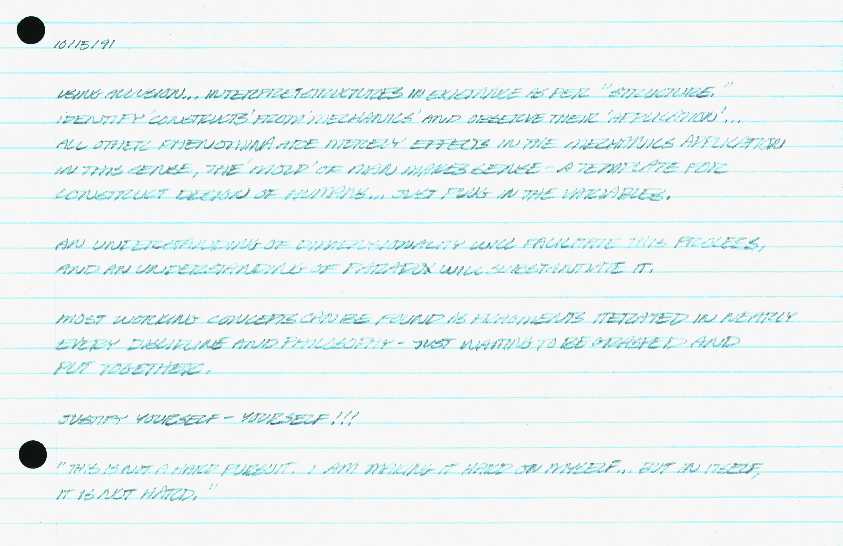 10/15/91
USING ALLUSION... INTERPRET STRUCTURES IN EXISTANCE AS PER "STRUCTURE."
IDENTIFY 'CONSTRUCTS' FROM 'MECHANICS' AND OBSERVE THEIR 'APPLICATION'...
ALL OTHER PHENOMINA ARE MERELY EFFECTS IN THE MECHANICS APPLICATION
IN THIS SENSE, THE 'MOLD' OF MAN MAKES SENSE - A TEMPLATE FOR
CONSTRUCT DESIGN OF HUMANS... JUST PLUG IN THE VARIABLES.
AN UNDERSTANDING OF DIMENSIONALITY WILL FACILITATE THIS PROCESS,
AND AN UNDERSTANDING OF PARADOX WILL SUBSTANTIATE IT.
MOST WORKING CONCEPTS CAN BE FOUND AS FRAGMENTS ITERATED IN NEARLY
EVERY DISCIPLINE AND PHILOSOPHY - JUST WAITING TO BE GRASPED AND
PUT TOGETHER.
JUSTIFY YOURSELF - YOURSELF!!!
"THIS IS NOT A HARD PURSUIT. I AM MAKING IT HARD ON MYSELF... BUT IN ITSELF,
IT IS NOT HARD."